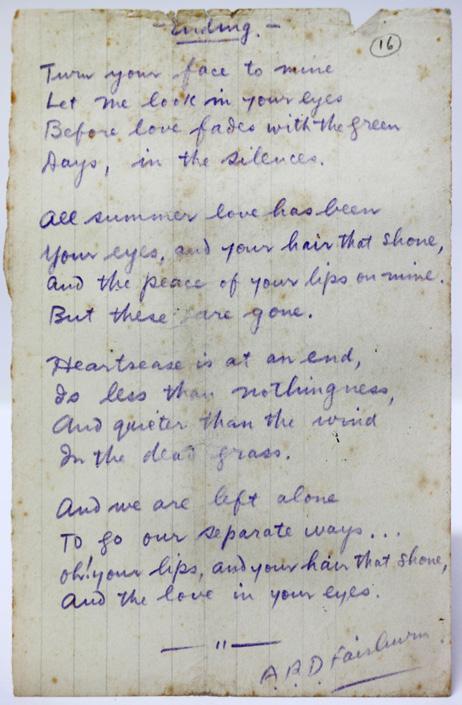 - Ending. -
16
Turn your face to mine
Let me look in your eyes
Before love fades with the green
Days, in the silences.
All summer love has been
Your eyes, and your hair that shone,
And the peace of your lips on mine.
But these are gone.
Heartsease is at an end,
Is less than nothingness,
And quieter than the wind
In the dead grass.
And we are left alone
To go our separate ways...
Oh! your lips, and your hair that shone,
And the love in your eyes.
— " —
A.R.D Fairburn.